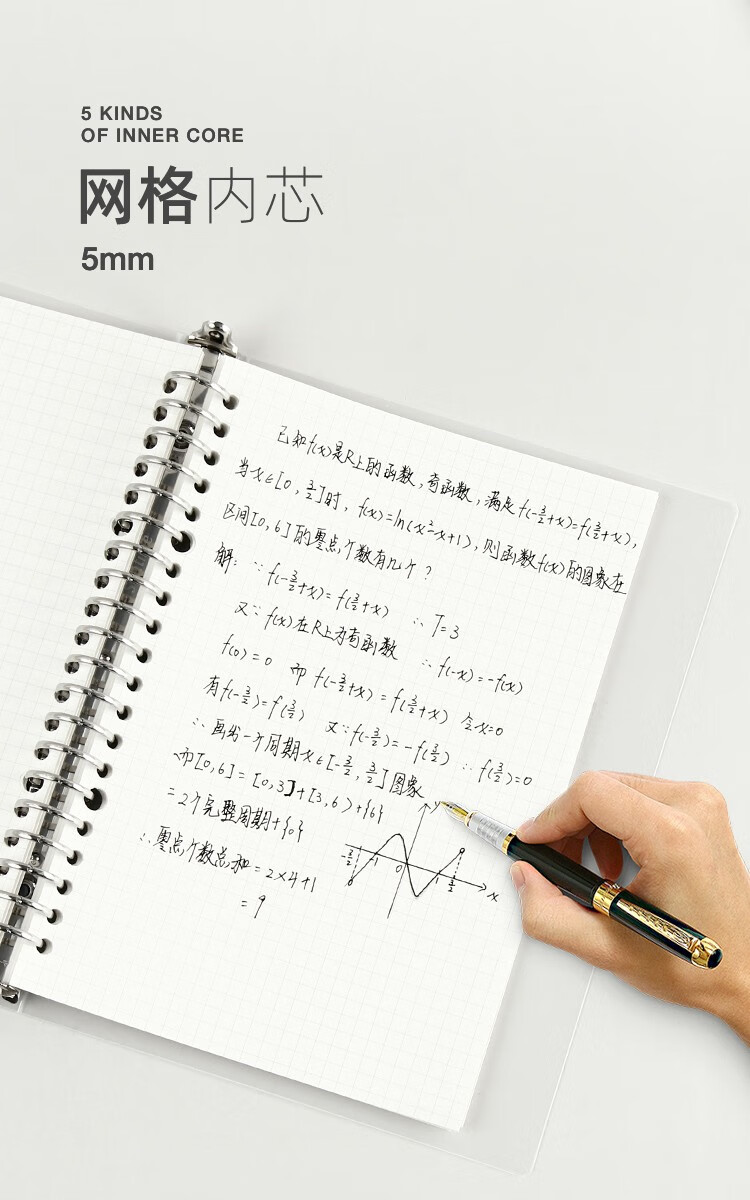 5 KINDS
OF INNER CORE
网格内芯
5mm
已知f(x)是R上的函数,奇函数,满足f(-3/2+x)=f(3/2+x),
当x∈[0,3/2]时,f(x)=ln(x²-x+1),则函数f(x)的图象在
区间[0,6]的零点个数有几个?
解:∵f(-3/2+x)=f(3/2+x) ∴T=3
又∵f(x)在R上为奇函数 ∴f(-x)=-f(x)
f(0)=0 而f(-3/2+x)=f(3/2+x) 令x=0
有f(-3/2)=f(3/2) 又∵f(-3/2)=-f(3/2) ∴f(3/2)=0
∴画出一个周期x∈[-3/2,3/2]图象
而[0,6]=[0,3]+[3,6)+{6}
=2个完整周期+{0}
∴零点个数总和=2×4+1
=9
-3/2 -1 0 1 3/2 x